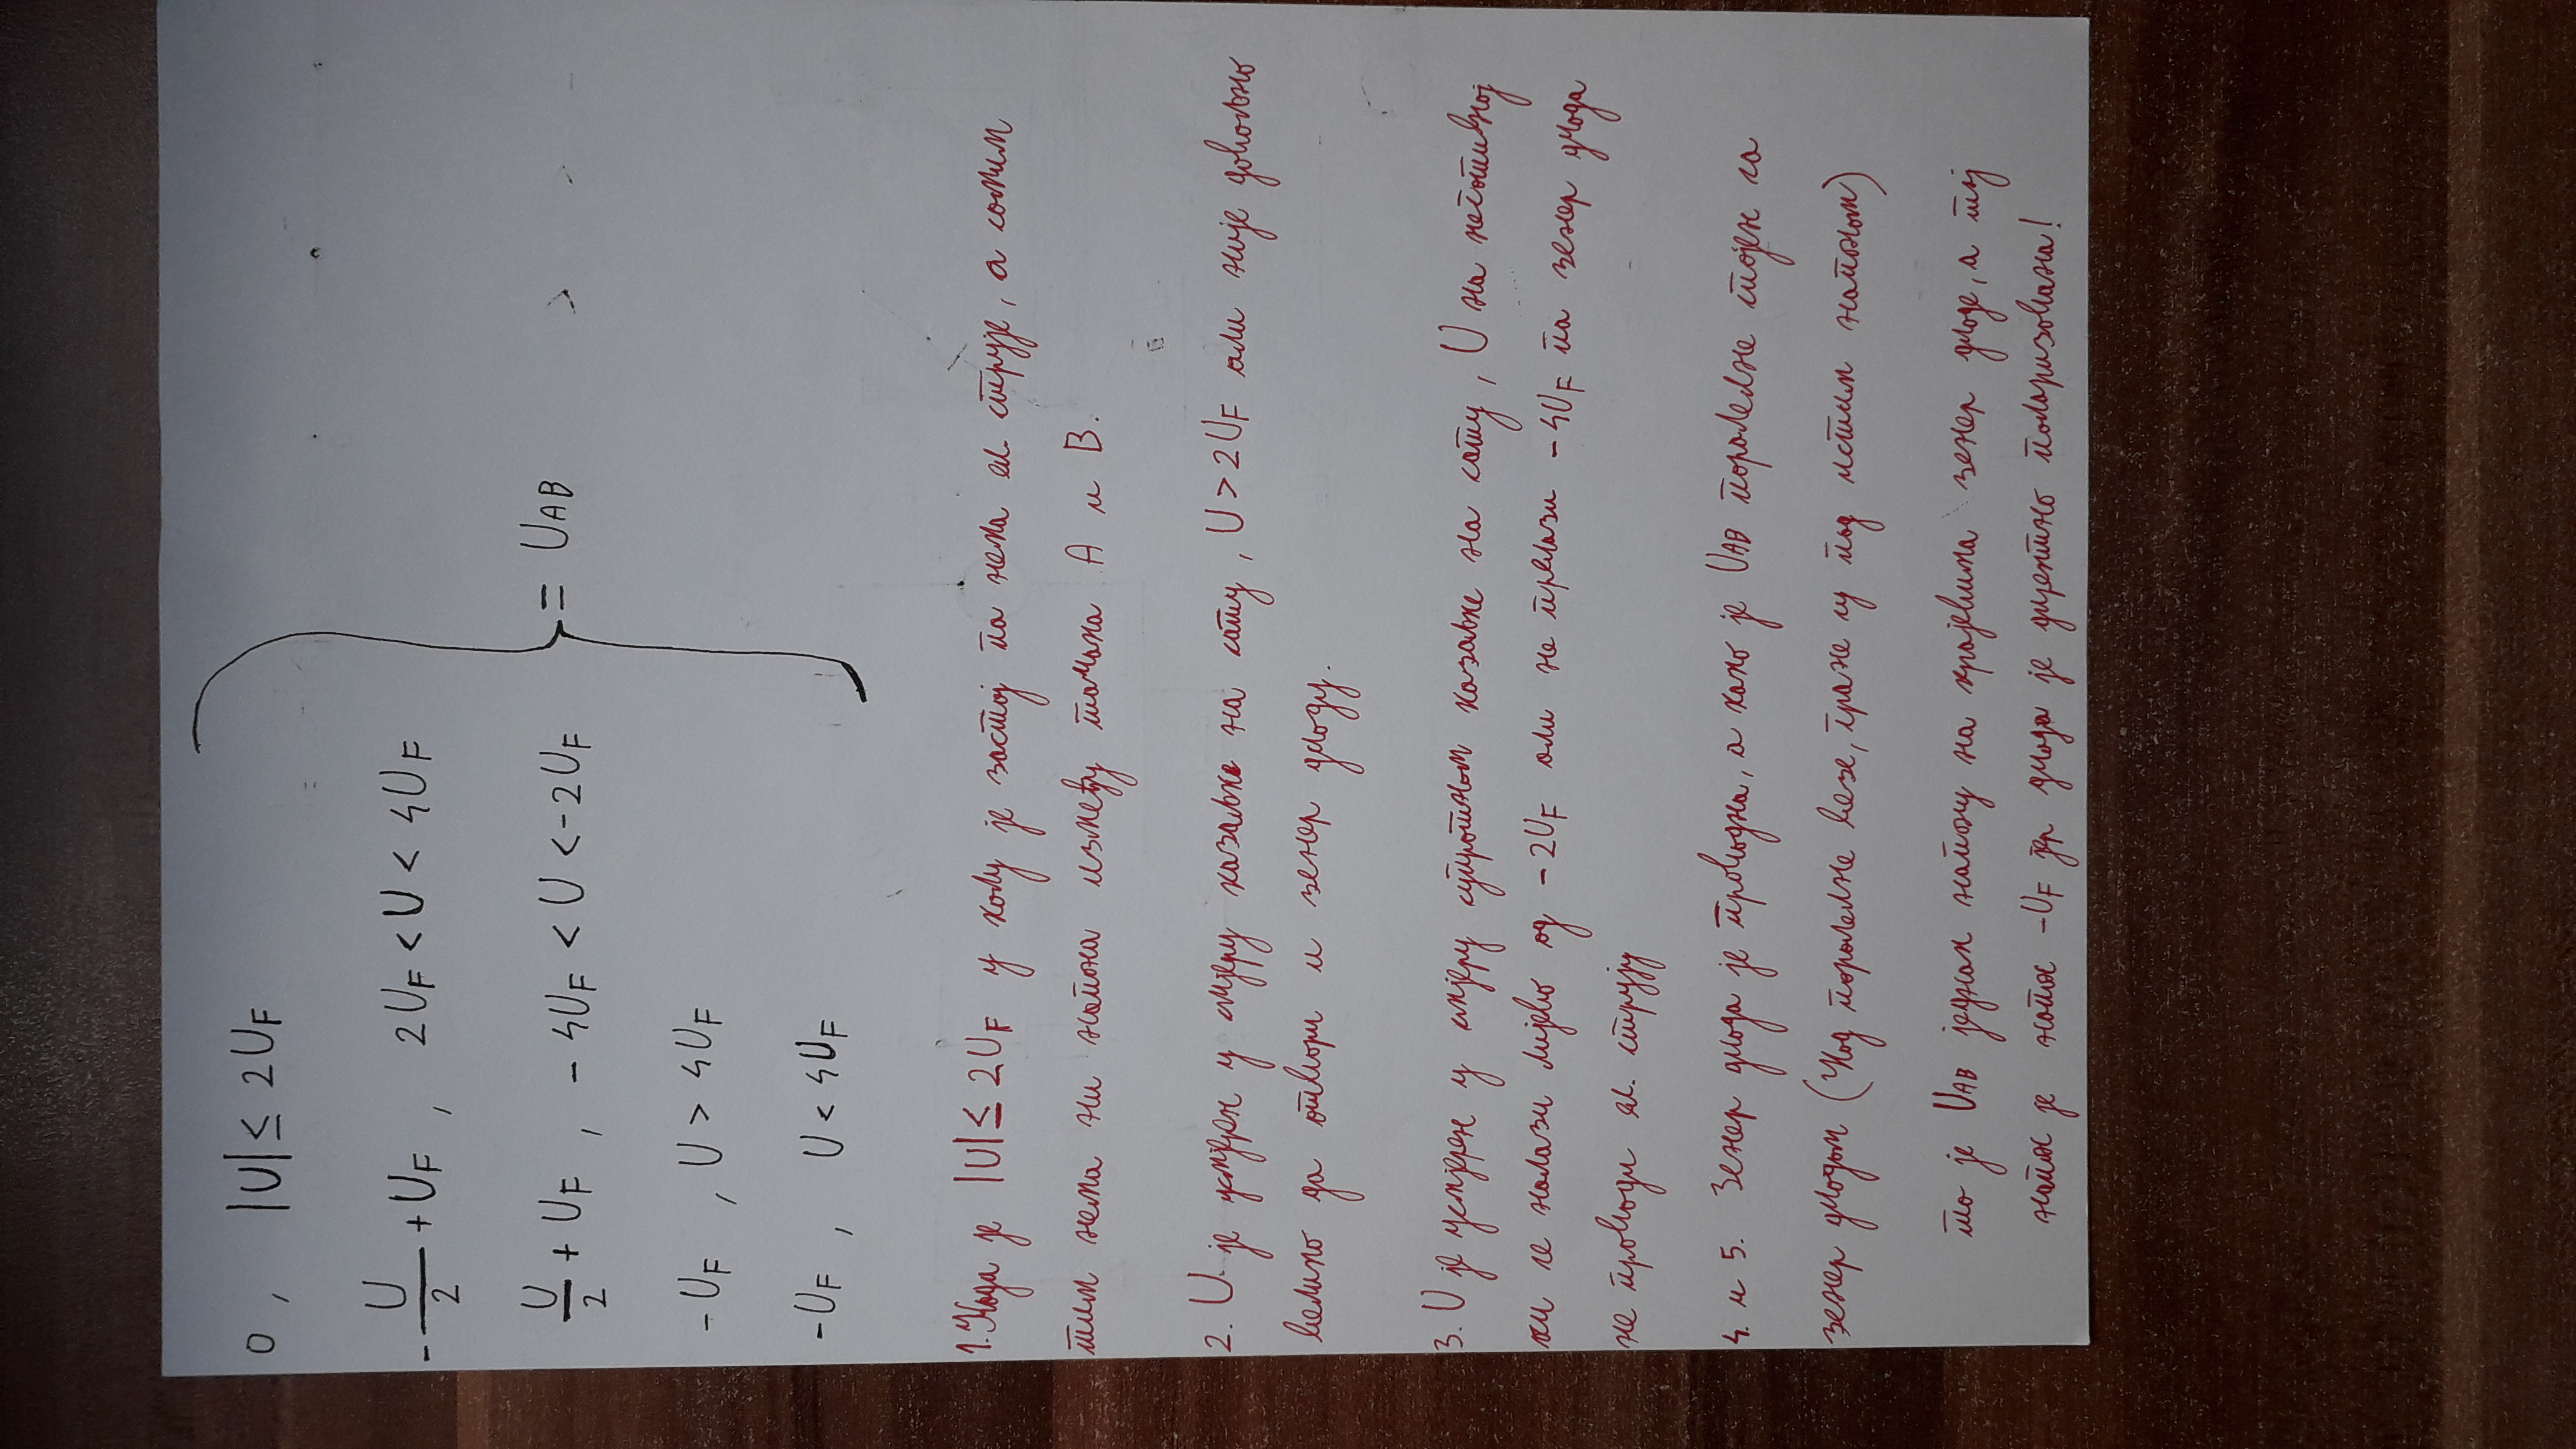 0 , |U| ≤ 2U_F
-U/2 + U_F , 2U_F < U < 4U_F
U/2 + U_F , -4U_F < U < -2U_F
= U_AB
-U_F , U > 4U_F
-U_F , U < 4U_F
1. Када је |U| ≤ 2U_F у колу је застој па нема ел. струје, а самим
тим нема ни напона између тачака A и B.
2. U је усмјерен у смјеру казаљке на сату, U > 2U_F али није довољно
велико да отвори и зенер диоду.
3. U је усмјерен у смјеру супротном казаљке на сату, U на негативној
оси се налази лијево од -2U_F али не прелази -4U_F па зенер диода
не проводи ел. струју
4. и 5. Зенер диода је проводна, а како је U_AB паралелне спојен са
зенер диодом (Код паралелне везе, гране су под истим напоном)
то је U_AB једнак напону на крајевима зенер диоде, а тај
напон је напон -U_F јер диода је директно поларизована!